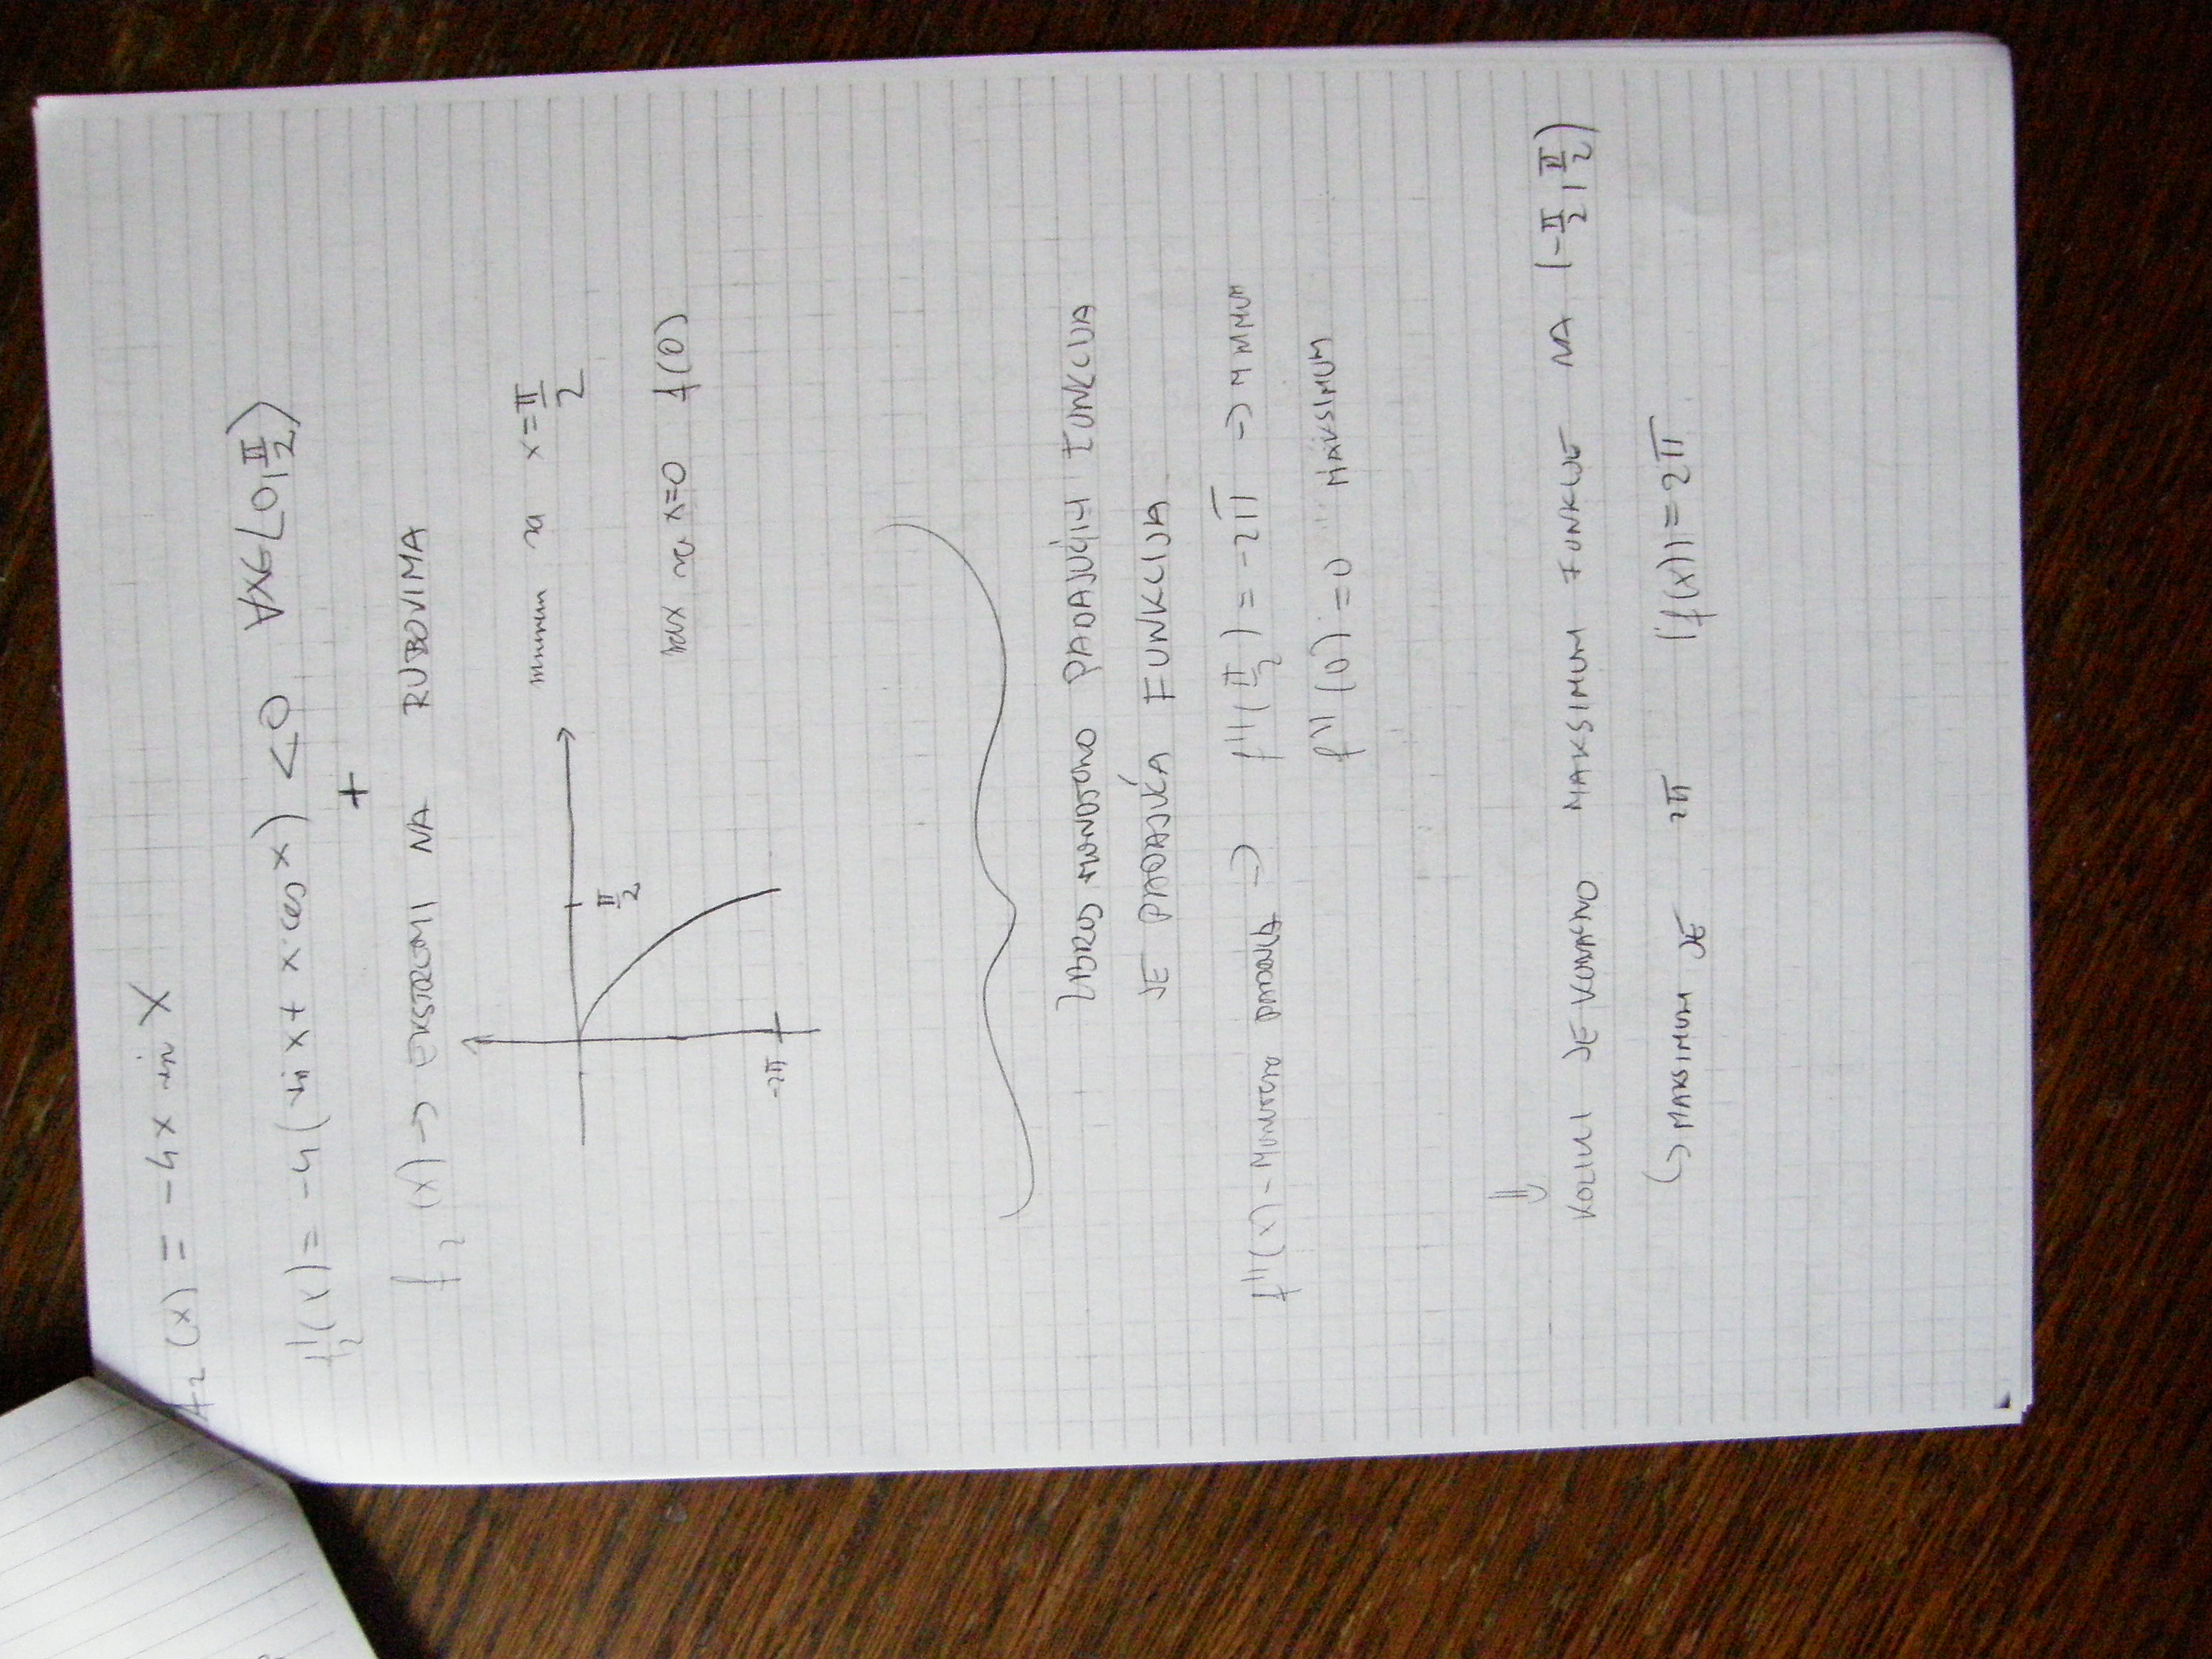 f₂(x) = -4x sin x
f₂'(x) = -4(sin x + x cos x) < 0 ∀x∈[0,π/2⟩
+
f₂(x) → EKSTREMI NA RUBOVIMA
minimum za x=π/2
π/2
max za x=0 f(0)
-2π
ZBROJ MONOTONO PADAJUĆIH FUNKCIJA
JE PADAJUĆA FUNKCIJA
f''(x) - MONOTONO PADAJUĆA → f''(π/2) = -2π → MINIMUM
f''(0) = 0 MAKSIMUM
⇓
KOLIKI JE KONAČNO MAKSIMUM FUNKCIJE NA (-π/2, π/2)
↳ MAKSIMUM JE 2π |f(x)| = 2π